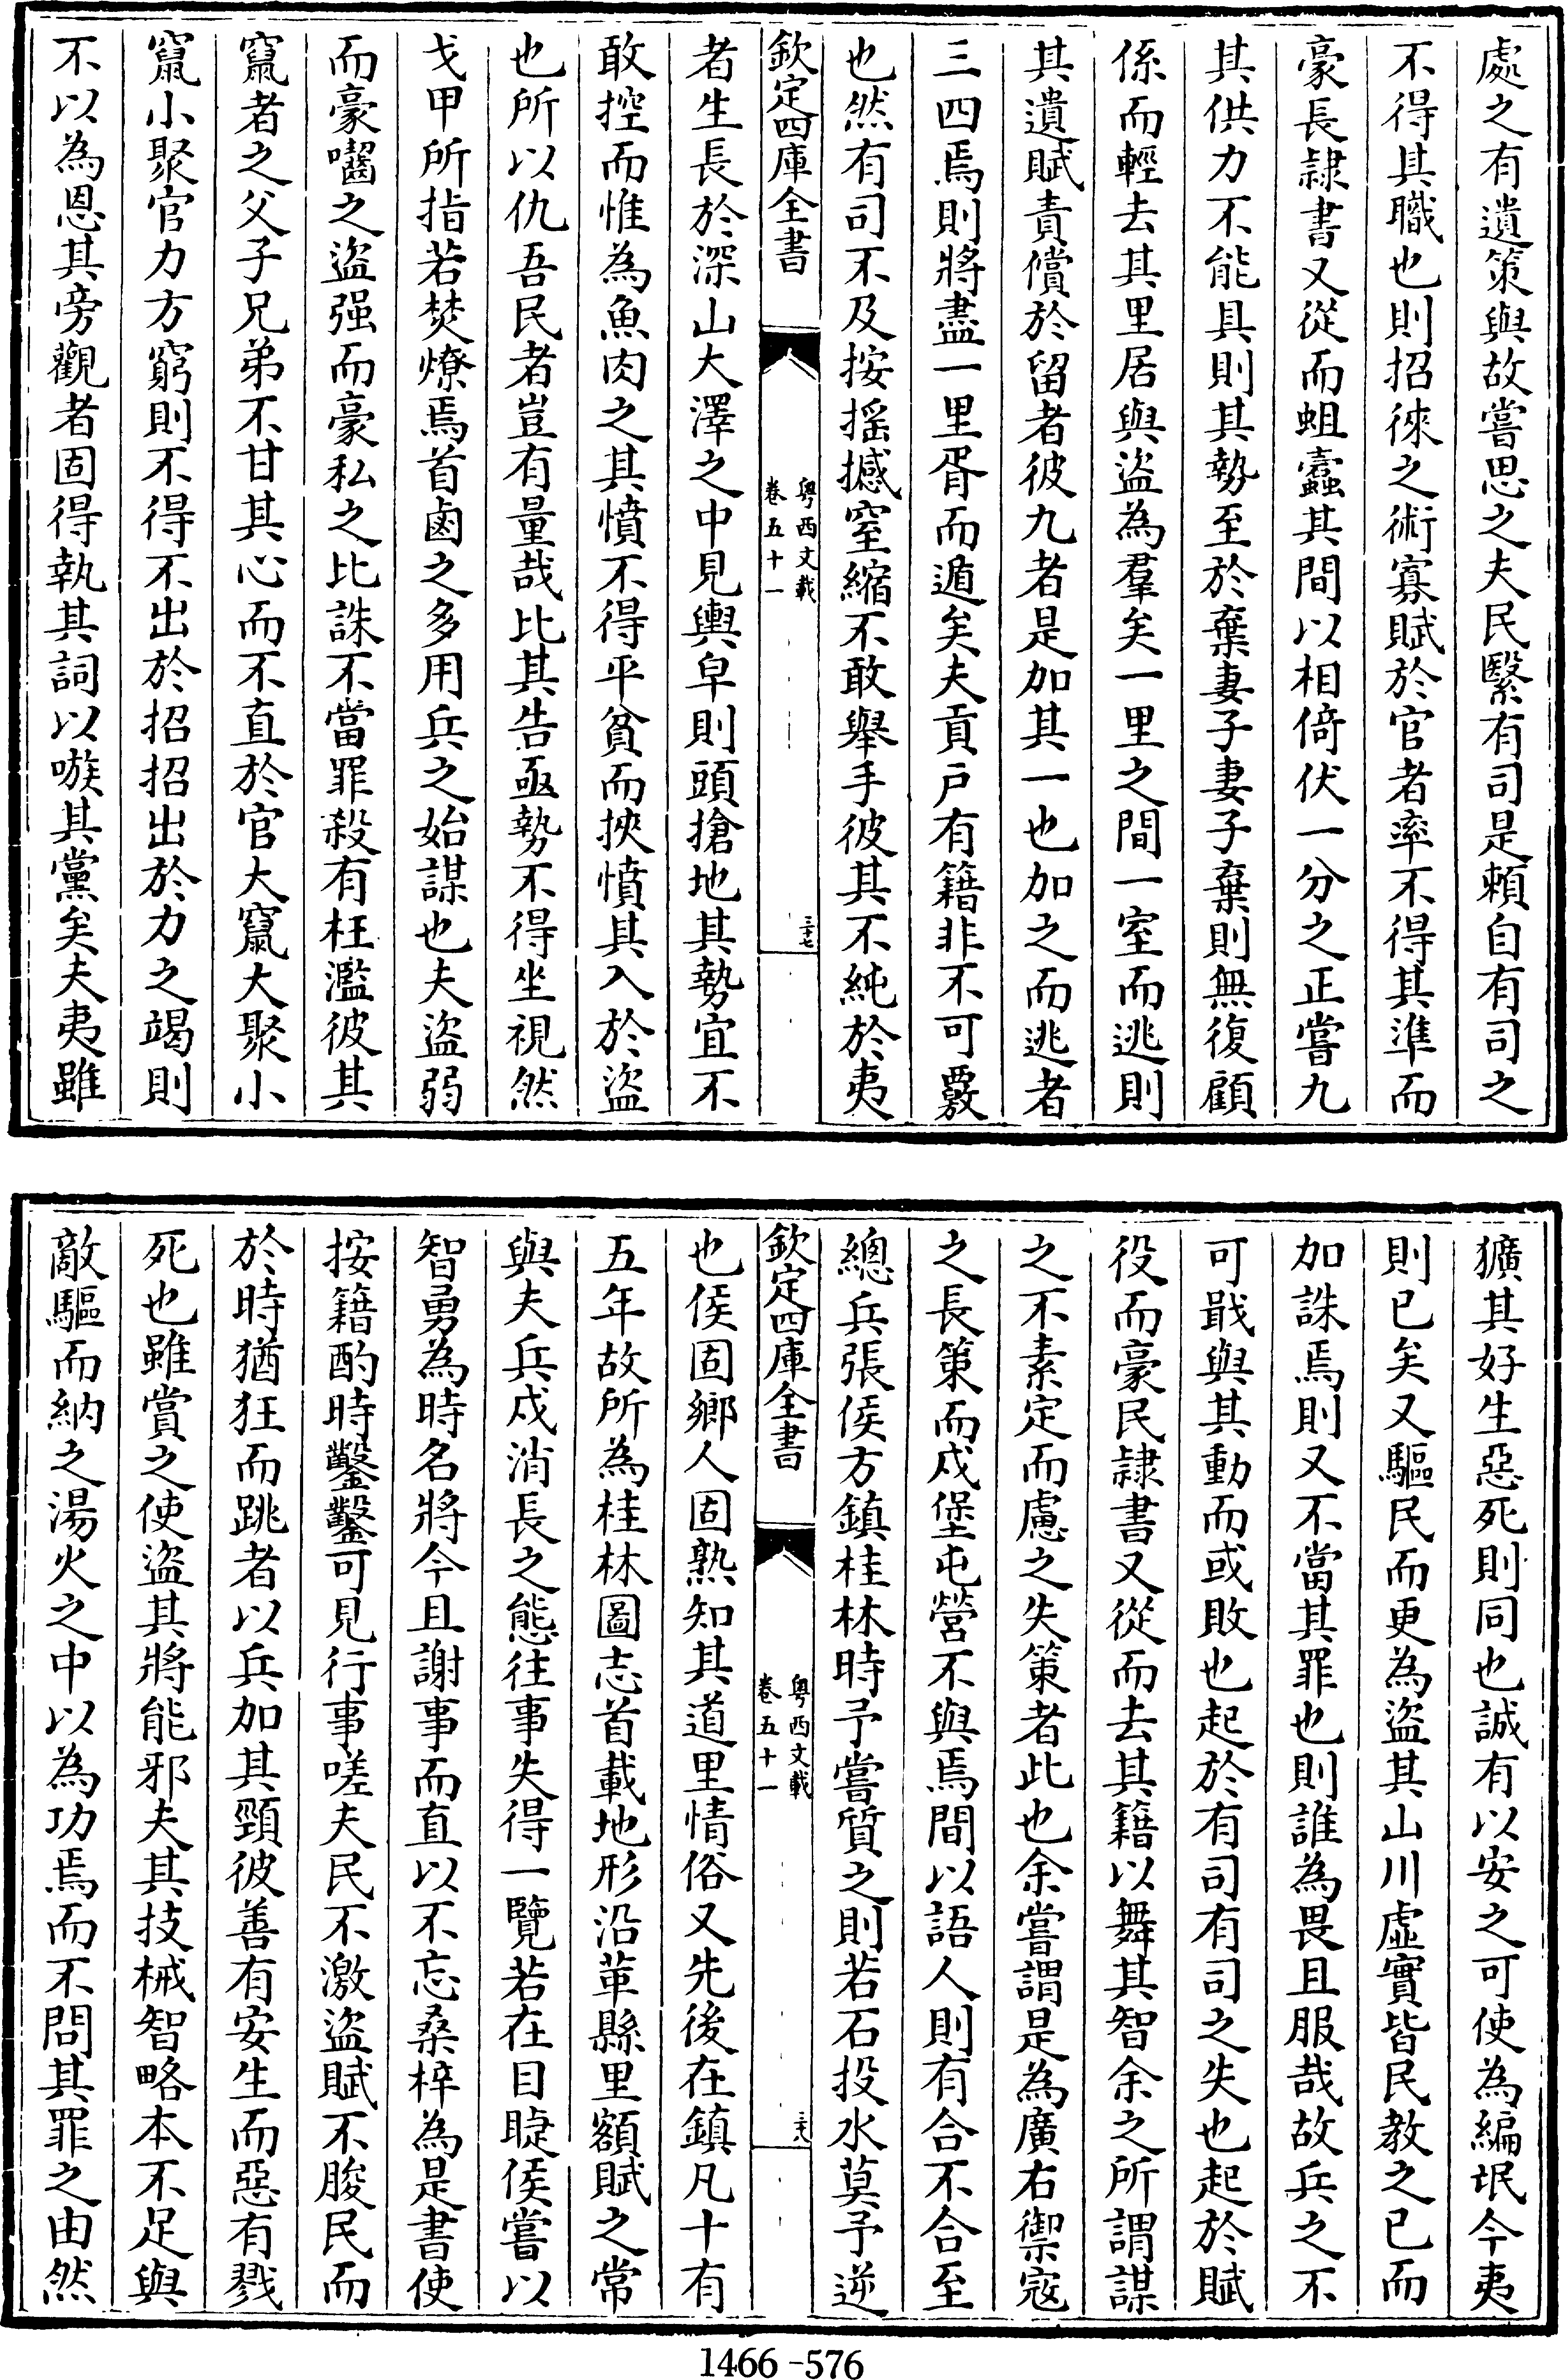 處之有遺策與故嘗思之夫民繄有司是賴自有司之
不得其職也則招徠之術寡賦於官者率不得其準而
豪長隷書又從而蛆蠧其間以相倚伏一分之正嘗九
其供力不能具則其勢至於棄妻子妻子棄則無復顧
係而輕去其里居與盜為羣矣一里之間一室而逃則
其遺賦責償於留者彼九者是加其一也加之而逃者
三四焉則將盡一里胥而遁矣夫貢戶有籍非不可覈
也然有司不及按搖撼窒縮不敢舉手彼其不純於夷
欽定四庫全書
粤西文載
卷五十一
三十七
者生長於深山大澤之中見輿皁則頭搶地其勢宜不
敢控而惟為魚肉之其憤不得平貧而挾憤其入於盜
也所以仇吾民者豈有量哉比其告亟勢不得坐視然
戈甲所指若焚燎焉首鹵之多用兵之始謀也夫盜弱
而豪嚙之盜强而豪私之比誅不當罪殺有枉濫彼其
竄者之父子兄弟不甘其心而不直於官大竄大聚小
竄小聚官力方窮則不得不出於招招出於力之竭則
不以為恩其旁觀者固得執其詞以嗾其黨矣夫夷雖
獷其好生惡死則同也誠有以安之可使為編氓今夷
則已矣又驅民而更為盜其山川虛實皆民教之已而
加誅焉則又不當其罪也則誰為畏且服哉故兵之不
可戢與其動而或敗也起於有司有司之失也起於賦
役而豪民隷書又從而去其籍以舞其智余之所謂謀
之不素定而慮之失策者此也余嘗謂是為廣右禦寇
之長策而戍堡屯營不與焉間以語人則有合不合至
總兵張侯方鎮桂林時予嘗質之則若石投水莫予逆
欽定四庫全書
粤西文載
卷五十一
三十八
也侯固鄉人固熟知其道里情俗又先後在鎮凡十有
五年故所為桂林圖志首載地形沿革縣里額賦之常
與夫兵戍消長之態往事失得一覽若在目睫侯嘗以
智勇為時名將今且謝事而直以不忘桑梓為是書使
按籍酌時鑿鑿可見行事嗟夫民不激盜賦不朘民而
於時猶狂而跳者以兵加其頸彼善有安生而惡有戮
死也雖賞之使盜其將能邪夫其技械智略本不足與
敵驅而納之湯火之中以為功焉而不問其罪之由然
1466-576